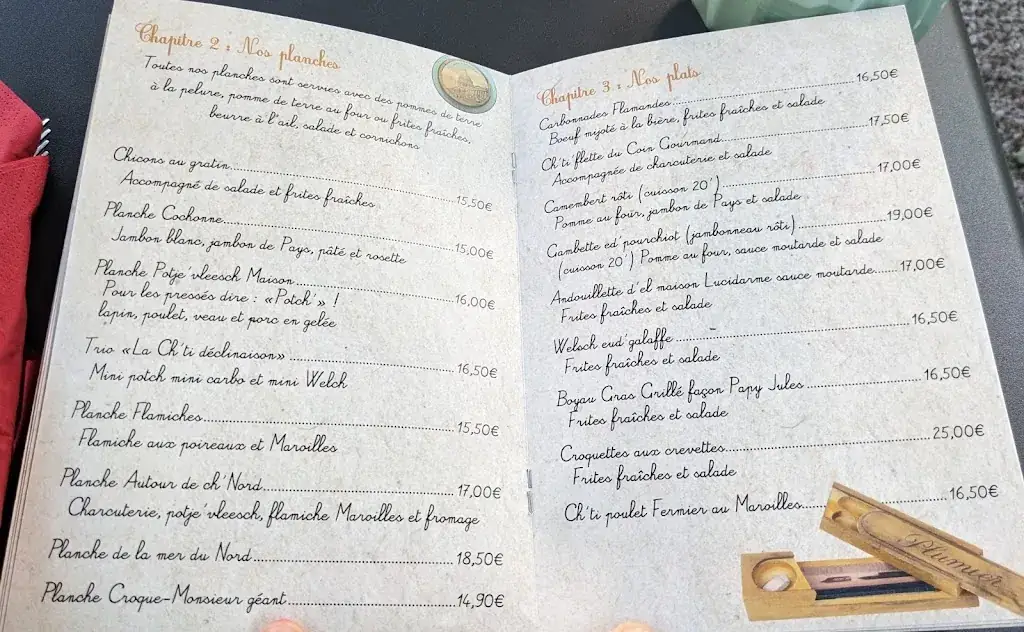 Chapitre 2 : Nos planches
Toutes nos planches sont servies avec des pommes de terre
à la pelure, pomme de terre au four ou frites fraîches,
beurre à l'ail, salade et cornichons
Chicons au gratin 15,50€
Accompagné de salade et frites fraîches
Planche Cochonne 15,00€
Jambon blanc, jambon de Pays, pâté et rosette
Planche Potje'vleesch Maison 16,00€
Pour les pressés dire : «Potch'» !
lapin, poulet, veau et porc en gelée
Trio «La Ch'ti déclinaison» 16,50€
Mini potch mini carbo et mini Welch
Planche Flamiches 15,50€
Flamiche aux poireaux et Maroilles
Planche Autour de ch'Nord 17,00€
Charcuterie, potje'vleesch, flamiche Maroilles et fromage
Planche de la mer du Nord 18,50€
Planche Croque-Monsieur géant 14,90€
Chapitre 3 : Nos plats
Carbonnades Flamandes 16,50€
Boeuf mijoté à la bière, frites fraîches et salade
Ch'ti'flette du Coin Gourmand 17,50€
Accompagnée de charcuterie et salade
Camembert rôti (cuisson 20') 17,00€
Pomme au four, jambon de Pays et salade
Gambette ed'pourchiot (jambonneau rôti) 19,00€
(cuisson 20') Pomme au four, sauce moutarde et salade
Andouillette d'el maison Lucidarme sauce moutarde 17,00€
Frites fraîches et salade
Welsch eud'galaffe 16,50€
Frites fraîches et salade
Boyau Gras Grillé façon Papy Jules 16,50€
Frites fraîches et salade
Croquettes aux crevettes 25,00€
Frites fraîches et salade
Ch'ti poulet Fermier au Maroilles 16,50€
Plumier